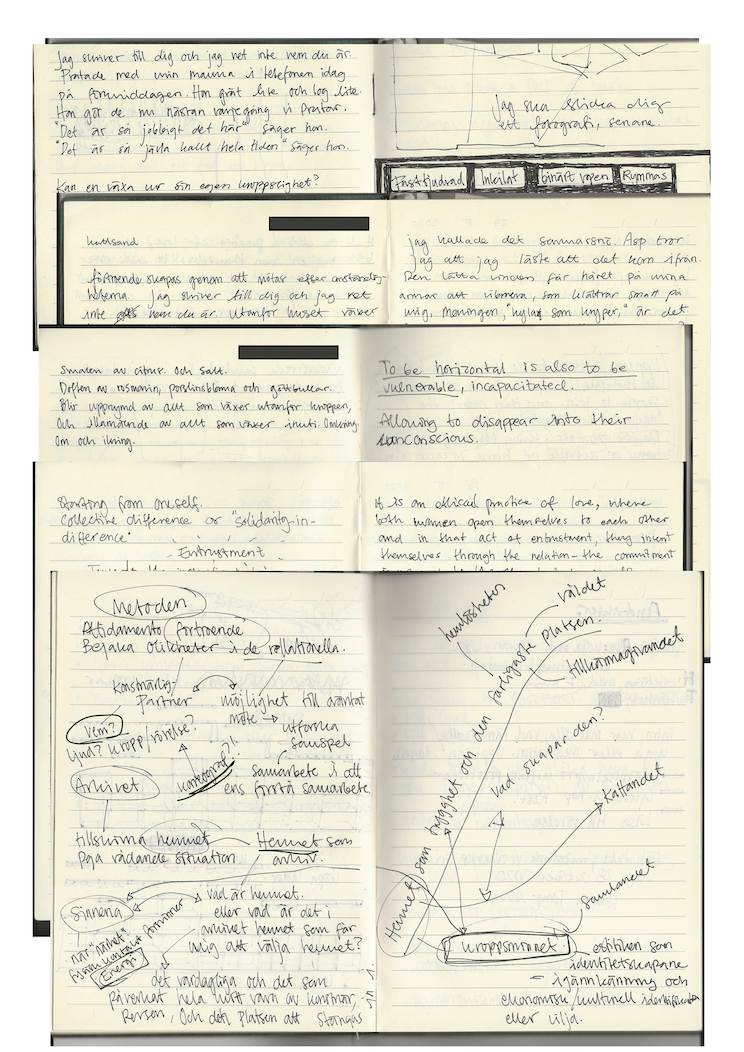 Jag skriver till dig och jag vet inte vem du är.
Pratade med min mamma i telefonen idag
på förmiddagen. Hon grät lite och log lite.
Hon gör de nu nästan varje gång vi pratar.
"Det är så jobbigt det här" säger hon.
"Det är så jävla kallt hela tiden" säger hon.
Kan en växa ur sin egen kroppslighet?
Jag ska skicka dig
ett fotografi, senare.
Fastbjudrad
binärt vapen
Rymmas
kattsand
förtroende skapas genom att mötas efter omständig-
heterna. Jag skriver till dig och jag vet
inte vem du är. Utanför huset växer
jag kallade det sommarsnö. Asp tror
jag att jag läste att det kom ifrån.
Den lätta vinden får håret på mina
armar att vibrera, som klättrar smalt på
mig, meningen, "hylat som kryper," är det
Smaken av citrus. Och salt.
Doften av rosmarin, porslinsblomma och göttbullar.
Blir uppnymd av allt som växer utanför kroppen,
Och illamående av allt som växer inuti. Omkring.
Om och ikring.
To be horizontal is also to be
vulnerable, incapacitated.
Allowing to disappear into their
uanconscious.
Starting from oneself.
Collective difference or "Solidarity-in-
difference"
Entrustment
It is an ethical practice of love, where
both women open themselves to each other
and in that act of entrustment, they invent
themselves through the relation – the commitment
Metoden
Affidamento förtroende
Bejaka olikheter i de rellationella.
Konstnärlig
Partner
möjlighet till oväntat
möte → utforska
samspel
Vem?
ljud? kropp/rörelse?
koreograf?!
samarbete i att
ens förstå samarbete
Arkivet
tillskriva hemmet
Pga rådande situation
Hemmet som
arkiv.
Sinnena
förnimmer
vad är hemmet.
eller vad är det i
arkivet hemmet som får
mig att välja hemmet?
när "närhet"
kontakt
Energi
det vardagliga och det som
påverkat hela livet vara av konstnär,
Person, Och den platsen att stängas
in i.
hemlösheten
våldet
Hemmet som trygghet och den farligaste platsen.
tillkännagivandet
vad skapar den?
Kattandet
Samlandet
kroppsminnet
estetiken som
identitetsskapane
= igännkänning och
ekonomisk/kulturell
eller vilja.